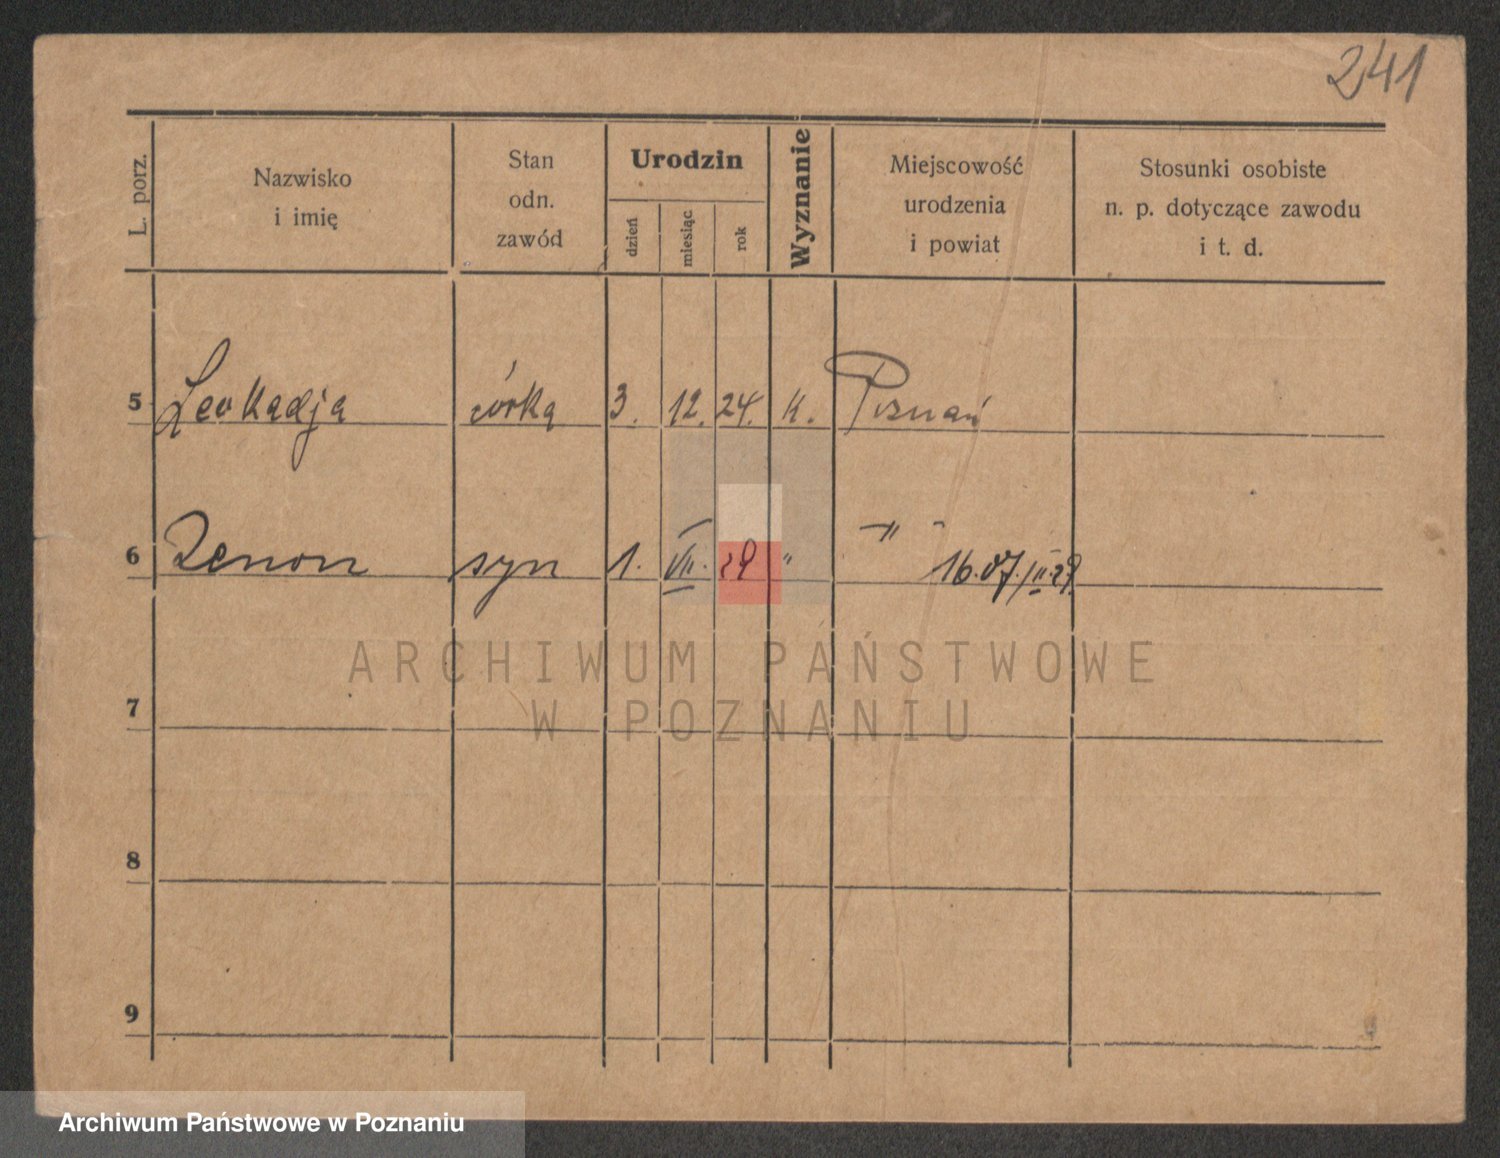 241
L. porz.
Nazwisko
i imię
Stan
odn.
zawód
Urodzin
dzień
miesiąc
rok
Wyznanie
Miejscowość
urodzenia
i powiat
Stosunki osobiste
n. p. dotyczące zawodu
i t. d.
5 Leokadja córka 3. 12. 24. K. Poznań
6 Zenon syn 1. VII. 29 " —"—
16.07.
7
8
9
ARCHIWUM PAŃSTWOWE
W POZNANIU
Archiwum Państwowe w Poznaniu